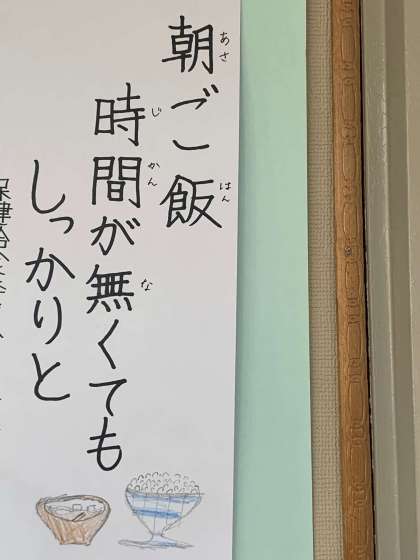 朝ご飯
あさ
はん
時間が無くても
じ
かん
な
しっかりと